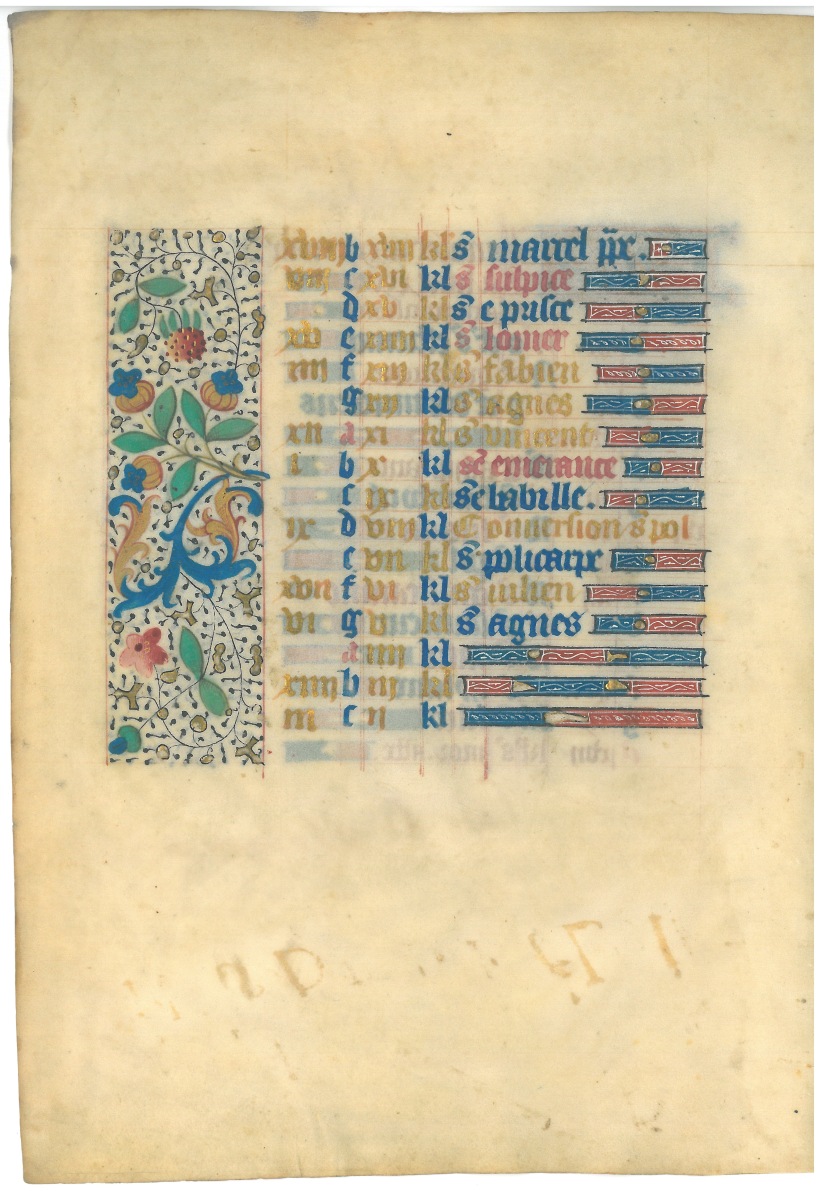 xviii b xvii kl s̄ marcel ppe.
viii c xvi kl s̄ sulpice
d xv kl s̄e prisce
xvi e xiiii kl s̄ lomer
v f xiii kl s̄ fabien
g xii kl s̄ agnes
xiii a xi kl s̄ vincent
ii b x kl sē emerance
c ix kl s̄e babille.
x d viii kl Conuersion s̄ pol
e vii kl s̄ policarpe
xviii f vi kl s̄ iulien
vii g v kl s̄ agnes
a iiii kl
xv b iii kl
iiii c ii kl